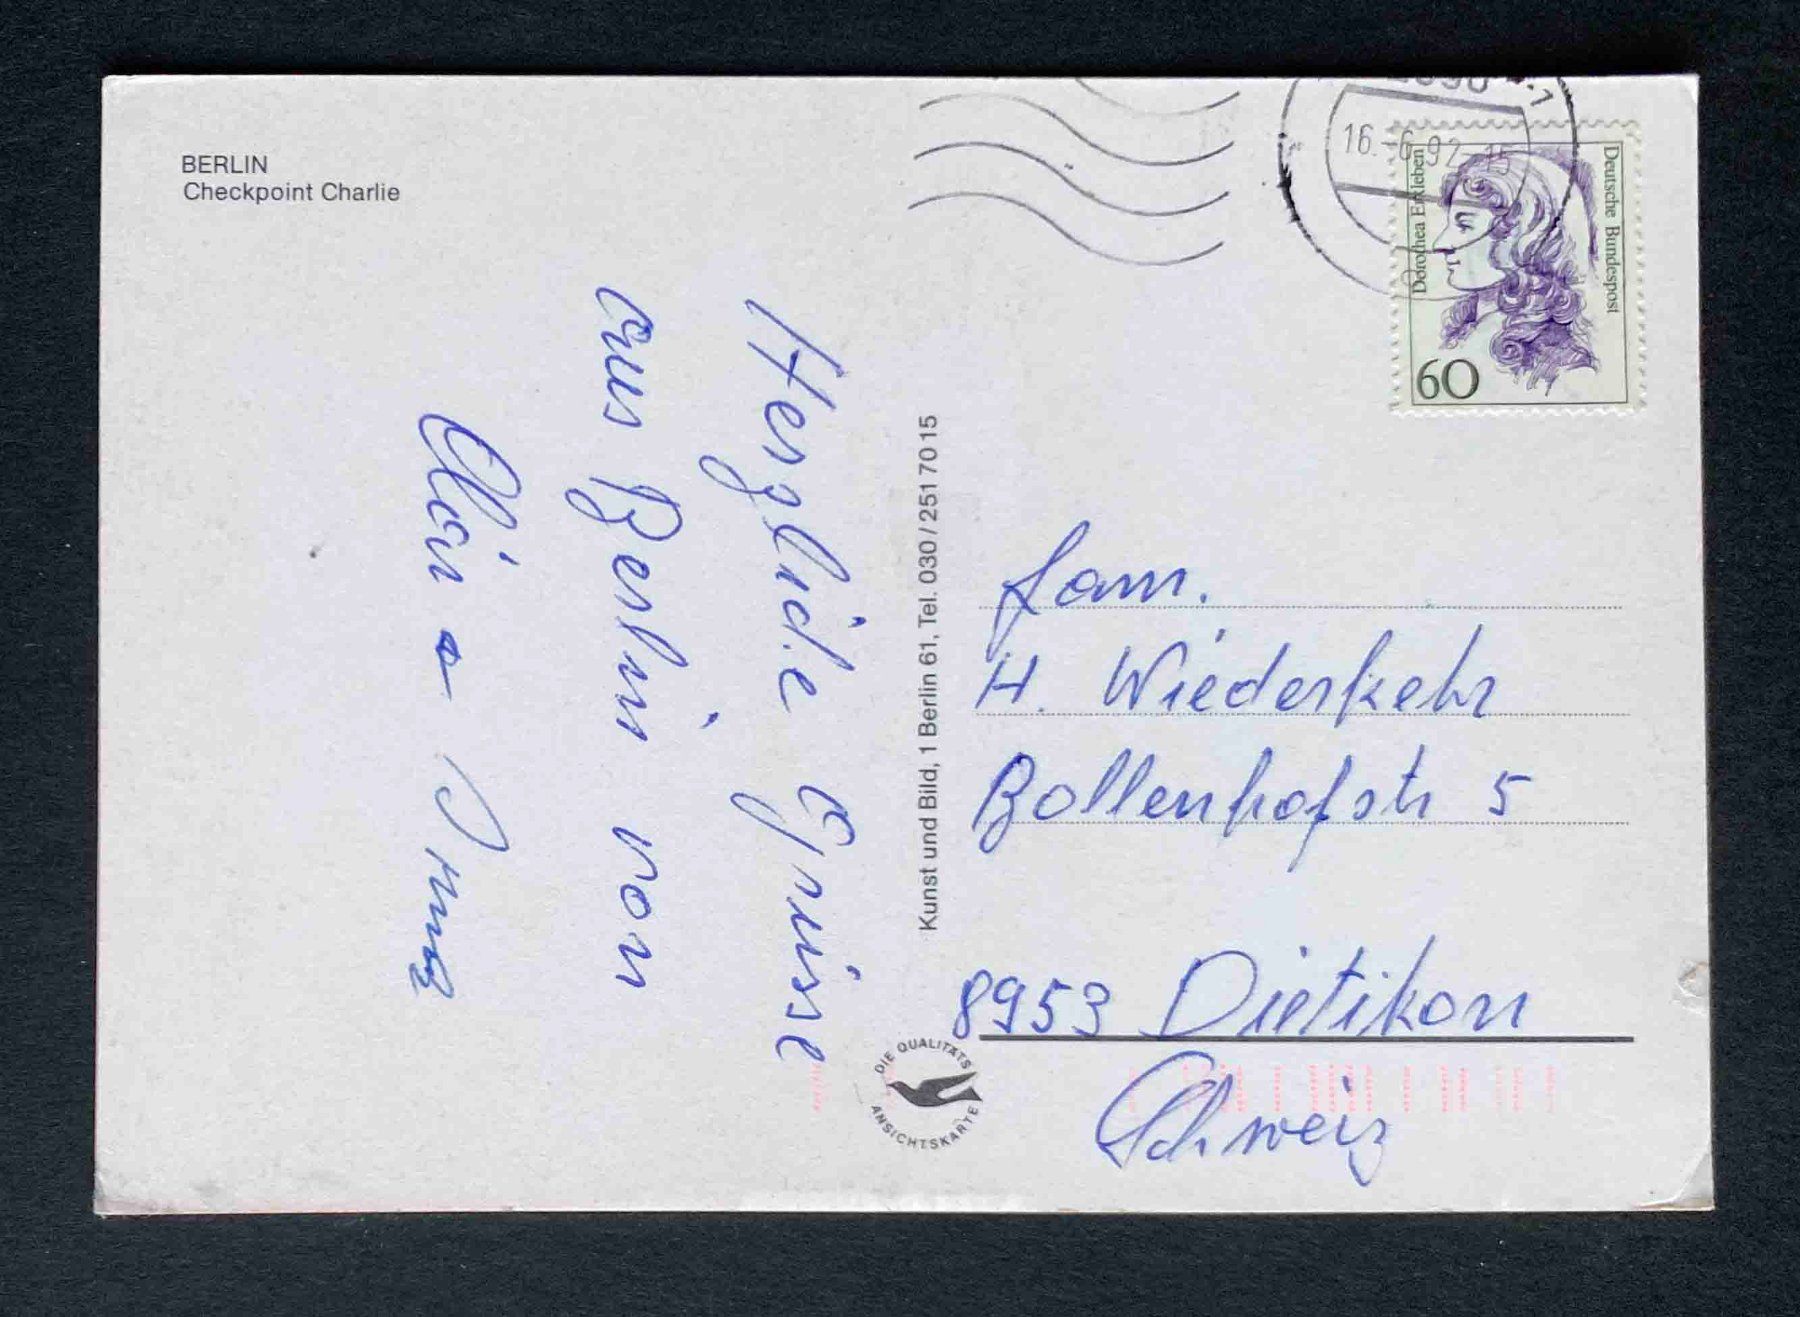 BERLIN
Checkpoint Charlie
Herzliche Grüsse
aus Berlin von
Kunst und Bild, 1 Berlin 61, Tel. 030/2517015
16.-6.92-15
Dorothea Erxleben
Deutsche Bundespost
60
Fam.
H. Wiederkehr
Bollenhofstr 5
8953 Dietikon
Schweiz
DIE QUALITÄTS
ANSICHTSKARTE